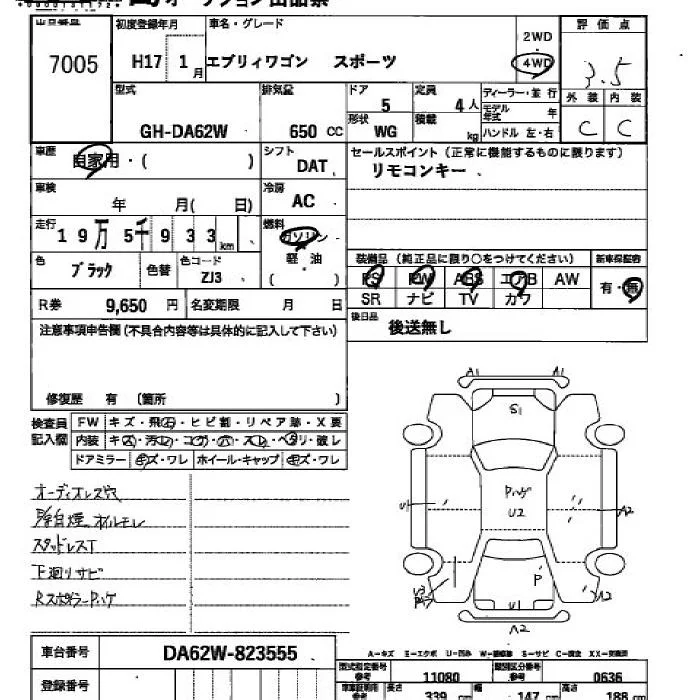 初度登録年月 車名・グレード 評価点
7005 H17 1月 エブリィワゴン スポーツ 2WD 4WD 3.5
型式 排気量 ドア 定員 ディーラー・並行 外装 内装
5 4人 モデル年式 年
GH-DA62W 650 CC 形状 WG 積載 kg ハンドル 左・右 C C
車歴 自家用・( ) シフト DAT セールスポイント(正常に機能するものに限ります)
リモコンキー
車検 年 月( 日) 冷房 AC
走行 19万5千933km 燃料 ガソリン
軽油
( )
色 ブラック 色替 色コード ZJ3
装備品 (純正品に限り○をつけてください) 新車保証書
PS PW ABS エアB AW 有・無
SR ナビ TV カワ
R券 9,650円 名変期限 月 日
後日品 後送無し
注意事項申告欄(不具合内容等は具体的に記入して下さい)
修復歴 有 〔箇所 〕
検査員記入欄 FW キズ・飛石・ヒビ割・リペア跡・X要
内装 キズ・汚レ・コゲ・穴・スレ・ヘタリ・破レ
ドアミラー キズ・ワレ ホイール・キャップ キズ・ワレ
オーディオレス穴
スタッドレスT
下廻りサビ
RスポイラーPハゲ
A1 A1
S1
Pハゲ
U2
U1 A2
P
U1
A2
A2
A-キズ E-エクボ U-凹み W-補修跡 S-サビ C-腐食 XX-交換済
車台番号 DA62W-823555
型式指定番号 11080 類別区分番号 0636
登録番号
長さ 339 cm 幅 147 cm 高さ 188 cm